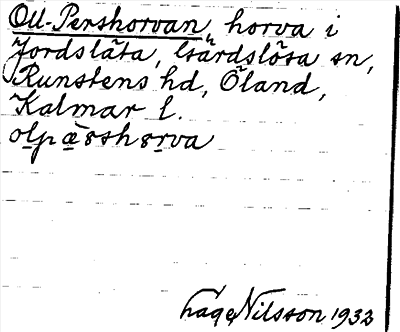 Oll-Pershorvan, horva i
Jordslåta, Gärdslösa sn,
Runstens hd, Öland,
Kalmar l.
Hage Nilsson 1932